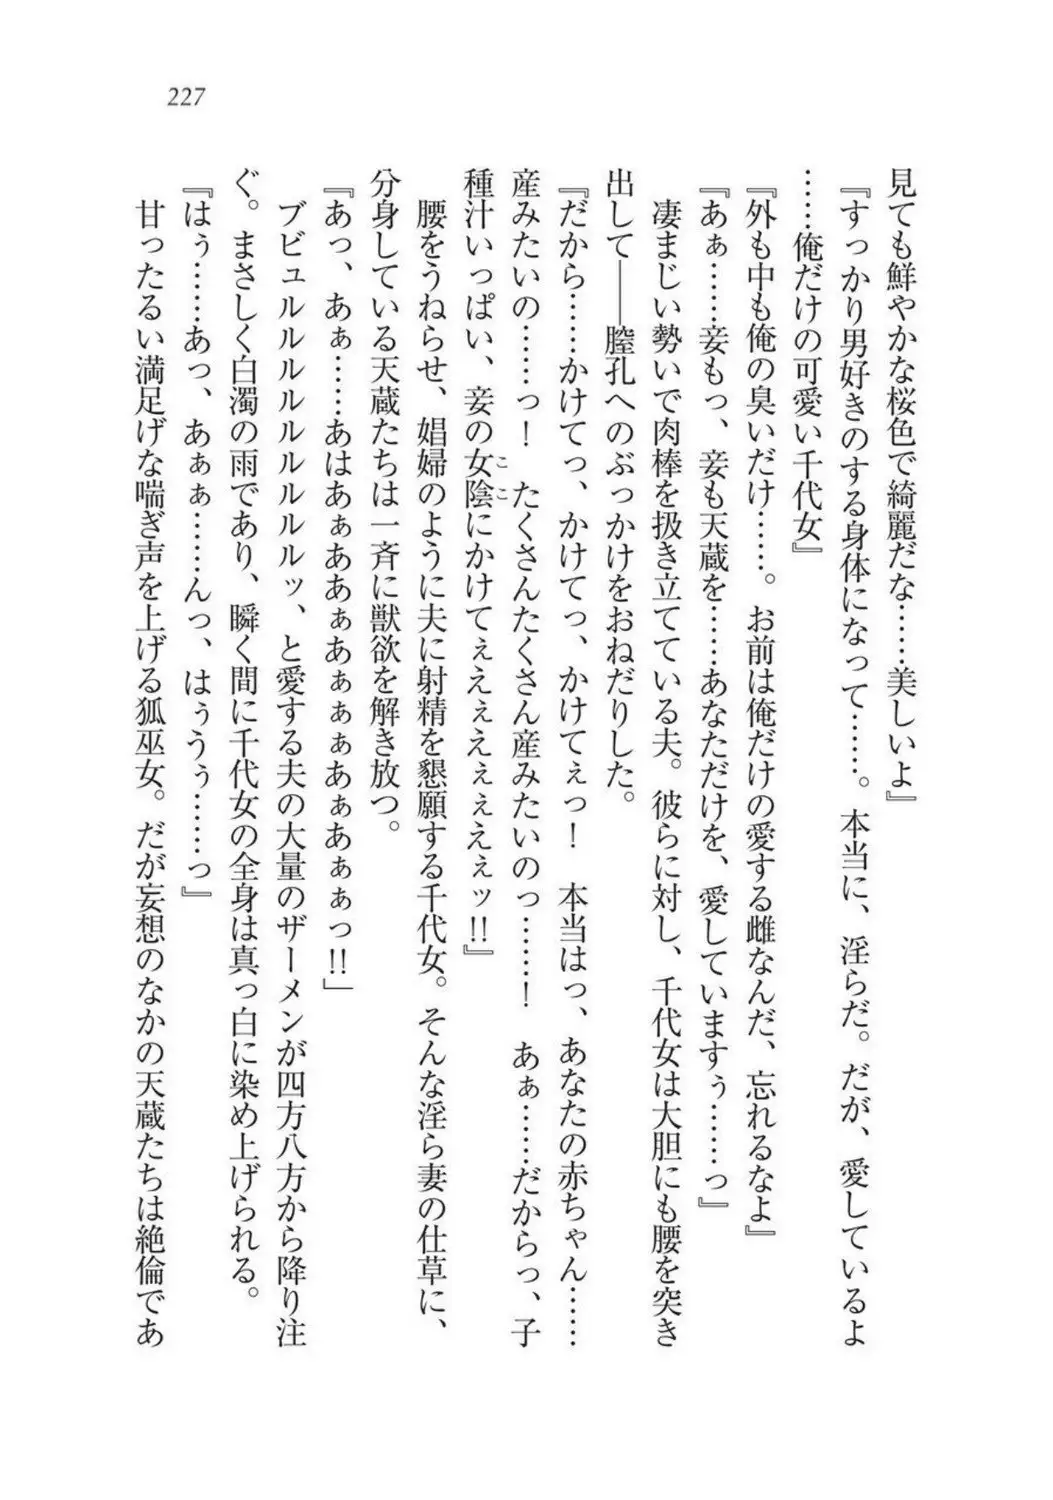 227
見ても鮮やかな桜色で綺麗だな……美しいよ』
『すっかり男好きのする身体になって……。本当に、淫らだ。だが、愛しているよ
……俺だけの可愛い千代女』
『外も中も俺の臭いだけ……。お前は俺だけの愛する雌なんだ、忘れるなよ』
『あぁ……妾もっ、妾も天蔵を……あなただけを、愛していますぅ……っ』
凄まじい勢いで肉棒を扱き立てている夫。彼らに対し、千代女は大胆にも腰を突き
出して――膣孔へのぶっかけをおねだりした。
『だから……かけてっ、かけてっ、かけてぇっ！　本当はっ、あなたの赤ちゃん……
産みたいの……っ！　たくさんたくさん産みたいのっ……！　あぁ……だからっ、子
種汁いっぱい、妾の女陰にかけてぇええぇぇええぇッ!!』
ここ
腰をうねらせ、娼婦のように夫に射精を懇願する千代女。そんな淫ら妻の仕草に、
分身している天蔵たちは一斉に獣欲を解き放つ。
『あっ、あぁ……あはあぁああぁあぁぁぁあぁあぁぁっ!!」
ブビュルルルルルルルルッ、と愛する夫の大量のザーメンが四方八方から降り注
ぐ。まさしく白濁の雨であり、瞬く間に千代女の全身は真っ白に染め上げられる。
『はぅ……あっ、あぁぁ……んっ、はぅうぅ……っ』
甘ったるい満足げな喘ぎ声を上げる狐巫女。だが妄想のなかの天蔵たちは絶倫であ